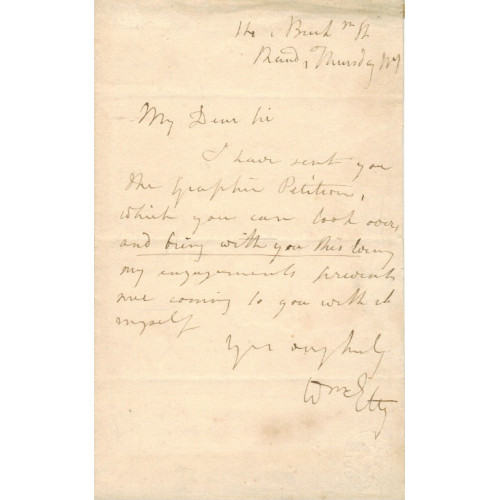 14, Buckm St
Strand, Thursday
My Dear Sir
I have sent you
the Graphic Petition,
which you can look over,
and bring with you this Eveng
my engagements prevents
me coming to you with it
myself
Yrs
Wm Etty